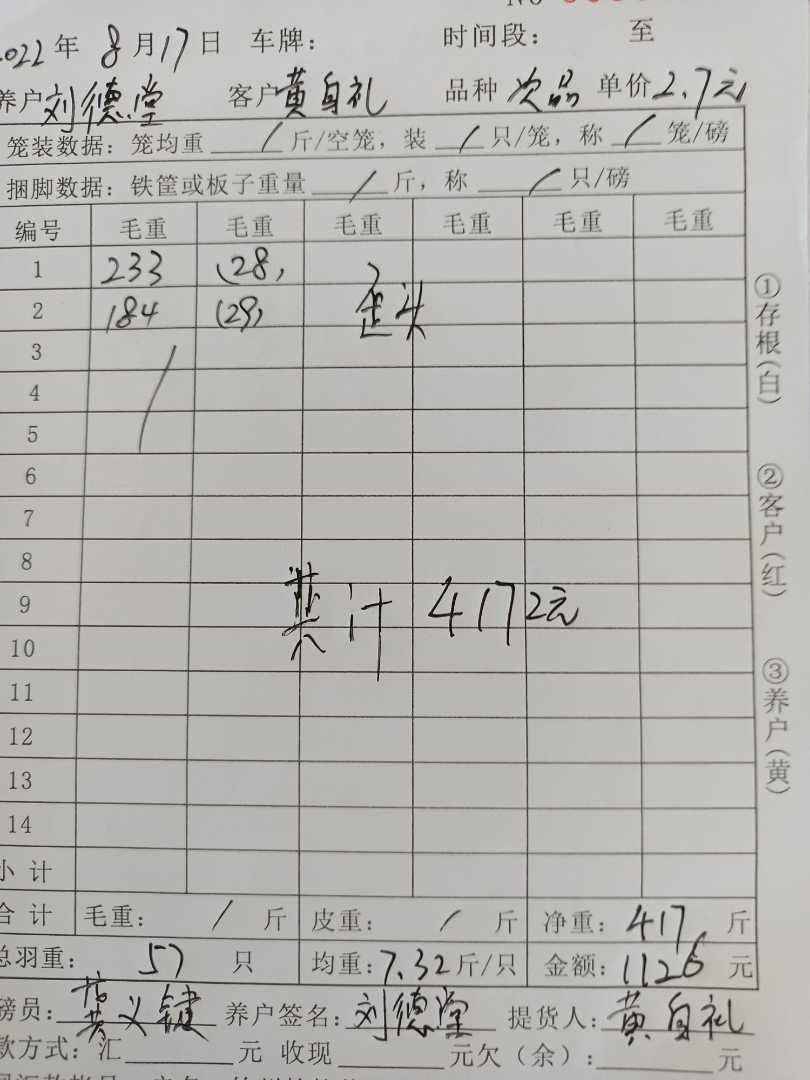 2022年 8月17日 车牌: 时间段: 至
养户 刘德堂 客户 黄自礼 品种 次品 单价 2.7元
笼装数据: 笼均重 / 斤/空笼, 装 / 只/笼, 称 / 笼/磅
捆脚数据: 铁筐或板子重量 / 斤, 称 / 只/磅
编号 毛重 毛重 毛重 毛重 毛重 毛重
1 233 (28)
2 184 (29) 歪头
3 /
4
5
6
7
8
9 共计 4172元
10
11
12
13
14
小计
合计 毛重: / 斤 皮重: / 斤 净重: 417 斤
总羽重: 57 只 均重: 7.32 斤/只 金额: 1126 元
磅员: 黄义键 养户签名: 刘德堂 提货人: 黄自礼
款方式: 汇 元 收现 元欠(余): 元
①存根(白)
②客户(红)
③养户(黄)